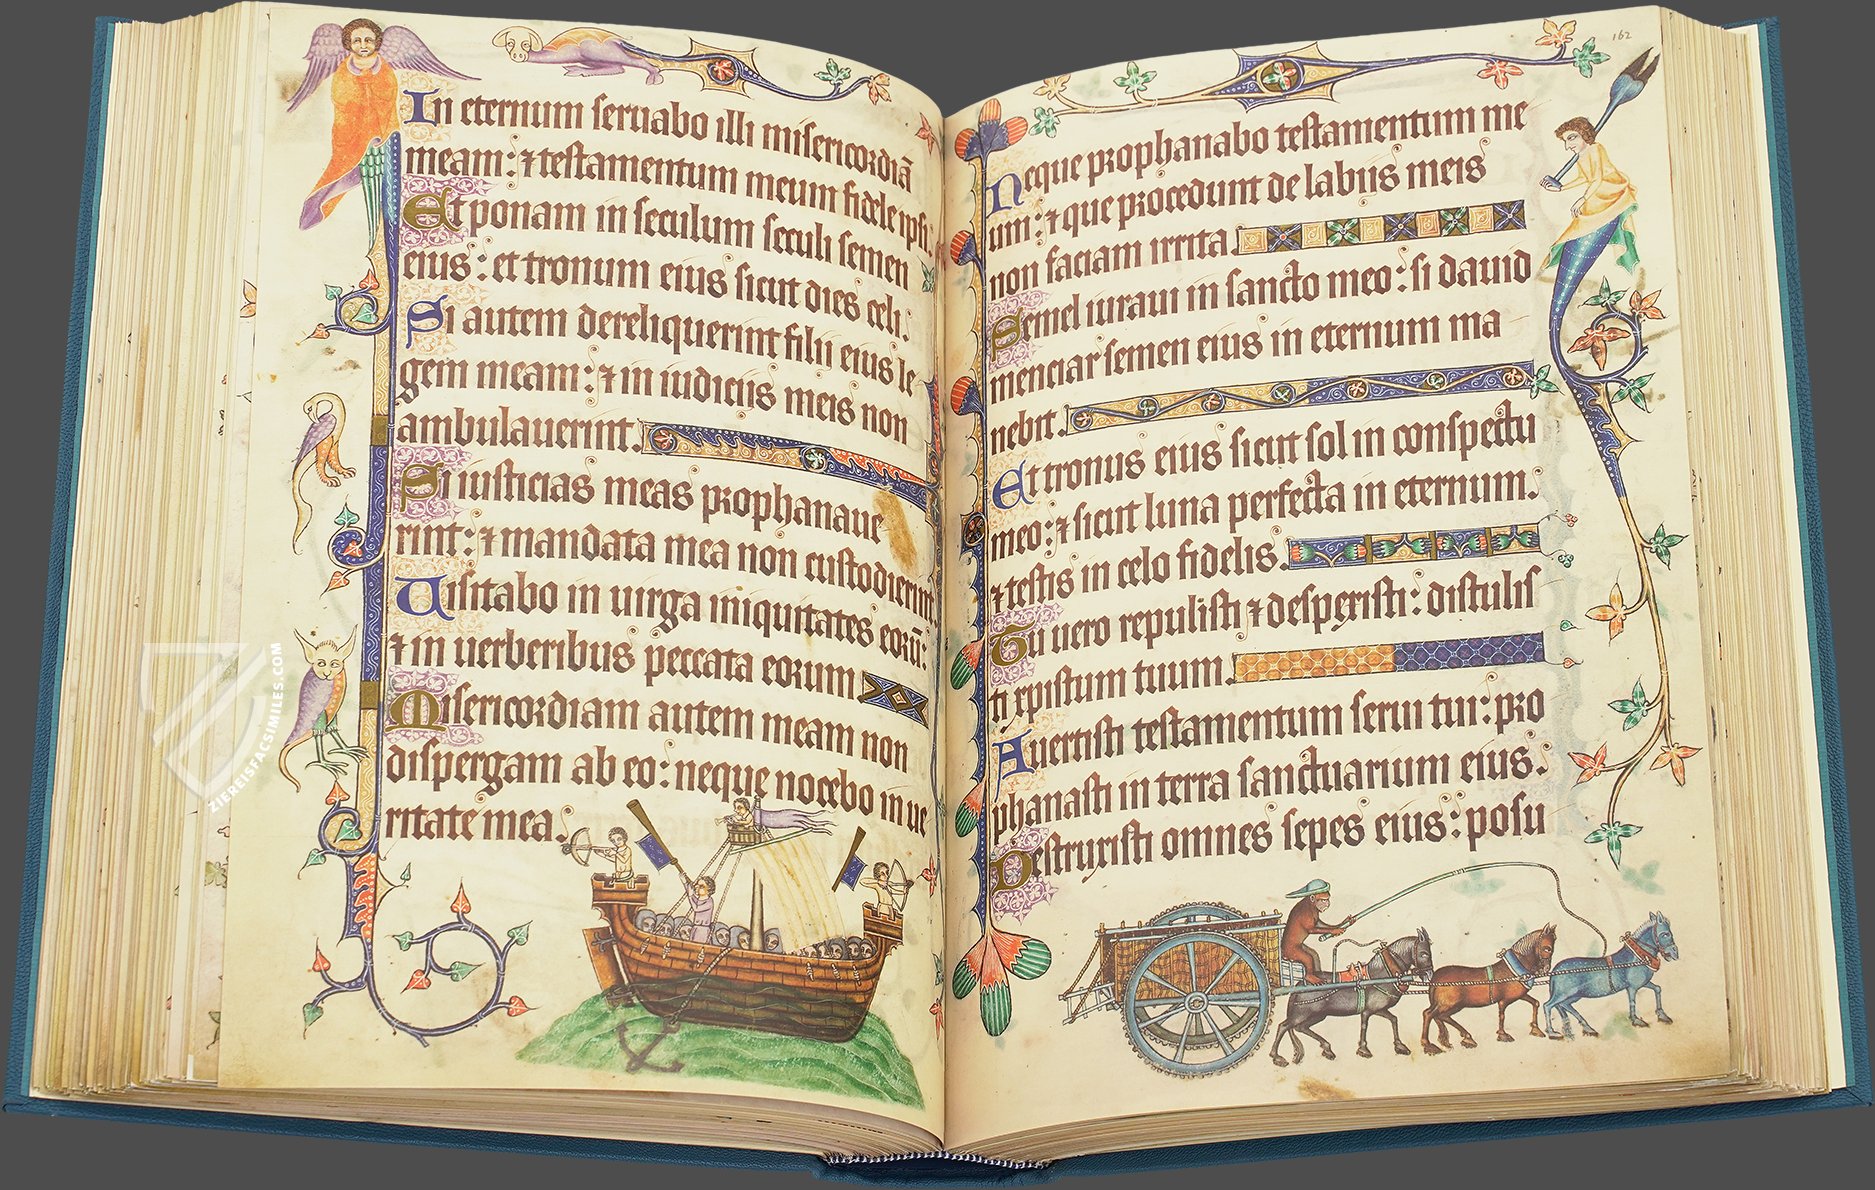 In eternum seruabo illi misericordiā
meam: ⁊ testamentum meum fidele ipsi.
Et ponam in seculum seculi semen
eius: et tronum eius sicut dies celi.
Si autem dereliquerint filii eius le
gem meam: ⁊ in iudiciis meis non
ambulauerint.
Si iusticias meas prophanaue
rint: ⁊ mandata mea non custodierint.
Uisitabo in uirga iniquitates eorū:
⁊ in uerberibus peccata eorum
Misericordiam autem meam non
dispergam ab eo: neque nocebo in ue
ritate mea.
162
Neque prophanabo testamentum me
um: ⁊ que procedunt de labiis meis
non faciam irrita.
Semel iuraui in sancto meo: si dauid
menciar semen eius in eternum ma
nebit.
Et tronus eius sicut sol in conspectu
meo: ⁊ sicut luna perfecta in eternum.
⁊ testis in celo fidelis.
Tu uero repulisti ⁊ despexisti: distulis
ti xpistum tuum.
Auertisti testamentum serui tui: pro
phanasti in terra sanctuarium eius.
Destruxisti omnes sepes eius: posu
ZIEREISFACSIMILES.COM